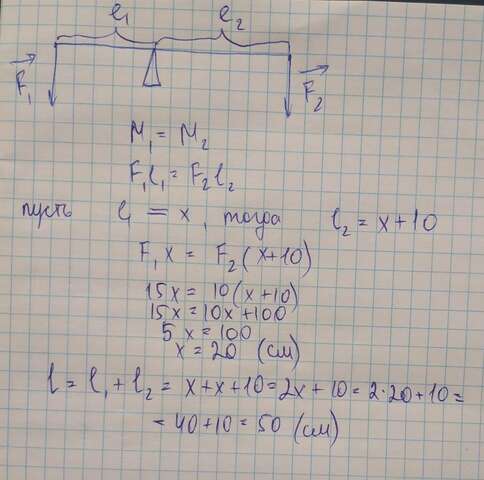 l₁ l₂
F₁ F₂
M₁ = M₂
F₁l₁ = F₂l₂
пусть l₁ = x, тогда l₂ = x+10
F₁x = F₂(x+10)
15x = 10(x+10)
15x = 10x+100
5x = 100
x = 20 (см)
l = l₁ + l₂ = x+x+10 = 2x+10 = 2·20+10 =
= 40+10 = 50 (см)